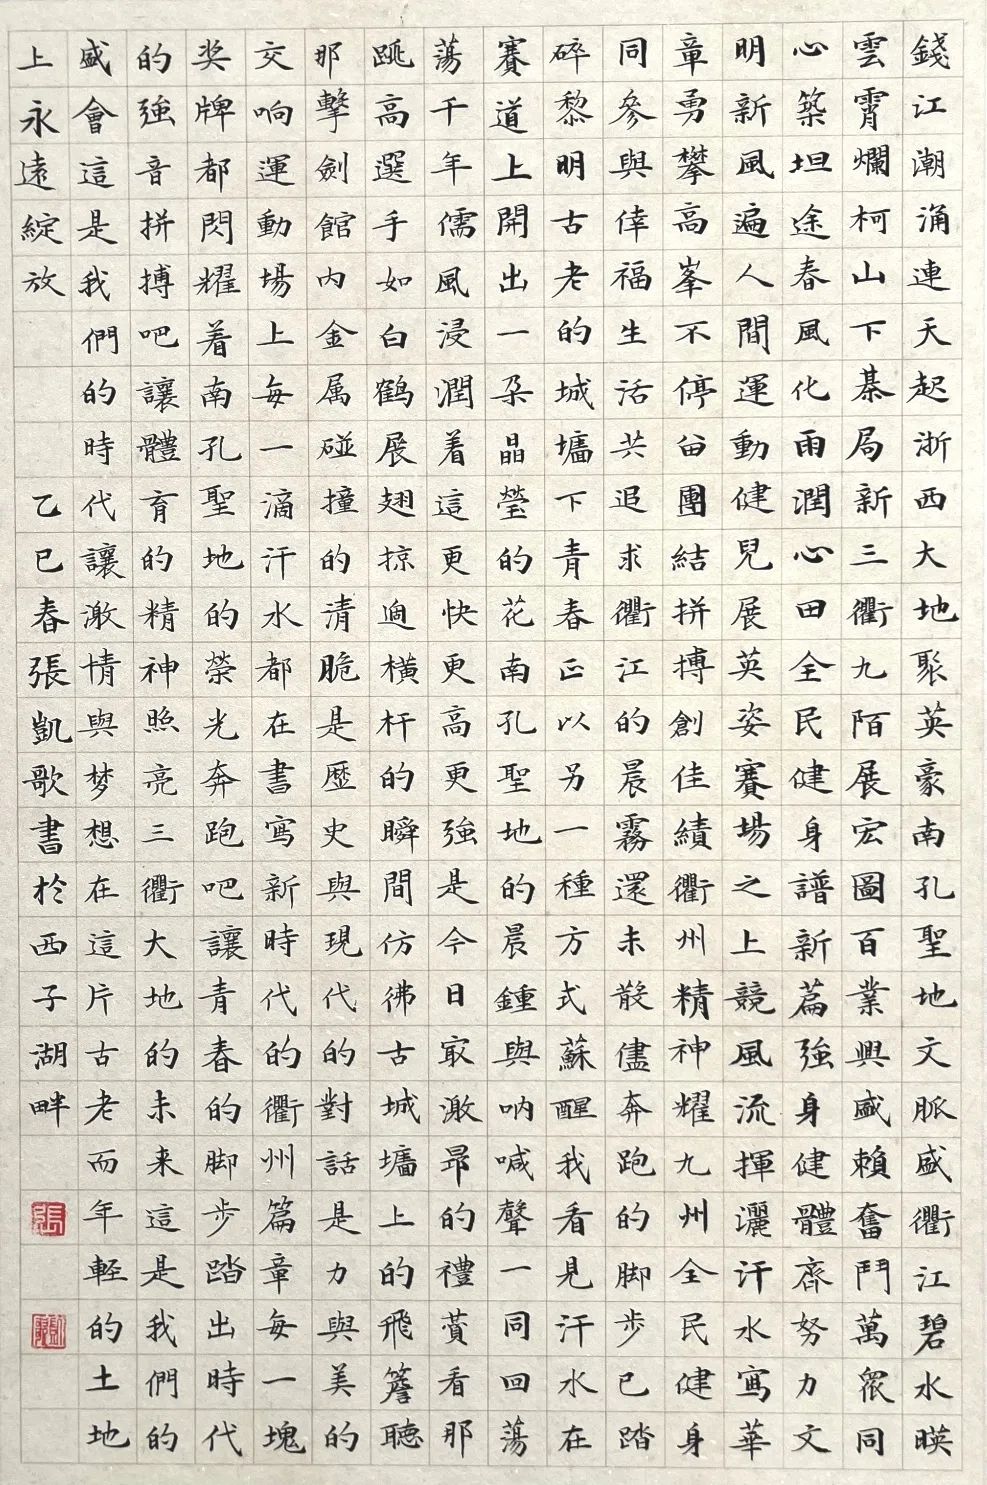 錢江潮涌連天起浙西大地聚英豪南孔聖地文脈盛衢江碧水暎
雲霄爛柯山下棊局新三衢九陌展宏圖百業興盛賴奮鬥萬眾同
心築坦途春風化雨潤心田全民健身譜新篇強身健體齊努力文
明新風遍人間運動健兒展英姿賽場之上競風流揮灑汗水寫華
章勇攀高峯不停留團結拼搏創佳績衢州精神耀九州全民健身
同參與倖福生活共追求衢江的晨霧還未散儘奔跑的脚步已踏
碎黎明古老的城墻下青春正以另一種方式蘇醒我看見汗水在
賽道上開出一朶晶瑩的花南孔聖地的晨鍾與吶喊聲一同回蕩
蕩千年儒風浸潤着這更快更高更強是今日冣激昂的禮賛看那
跳高選手如白鶴展翅掠過橫杆的瞬間仿彿古城墻上的飛簷聽
那擊劍館内金属碰撞的清脆是歷史與現代的對話是力與美的
交响運動場上每一滴汗水都在書寫新時代的衢州篇章每一塊
奖牌都閃耀着南孔聖地的榮光奔跑吧讓青春的脚步踏出時代
的強音拼搏吧讓體育的精神照亮三衢大地的未来這是我們的
盛會這是我們的時代讓激情與梦想在這片古老而年輕的土地
上永遠綻放
乙巳春張凱歌書於西子湖畔
張
凱歌